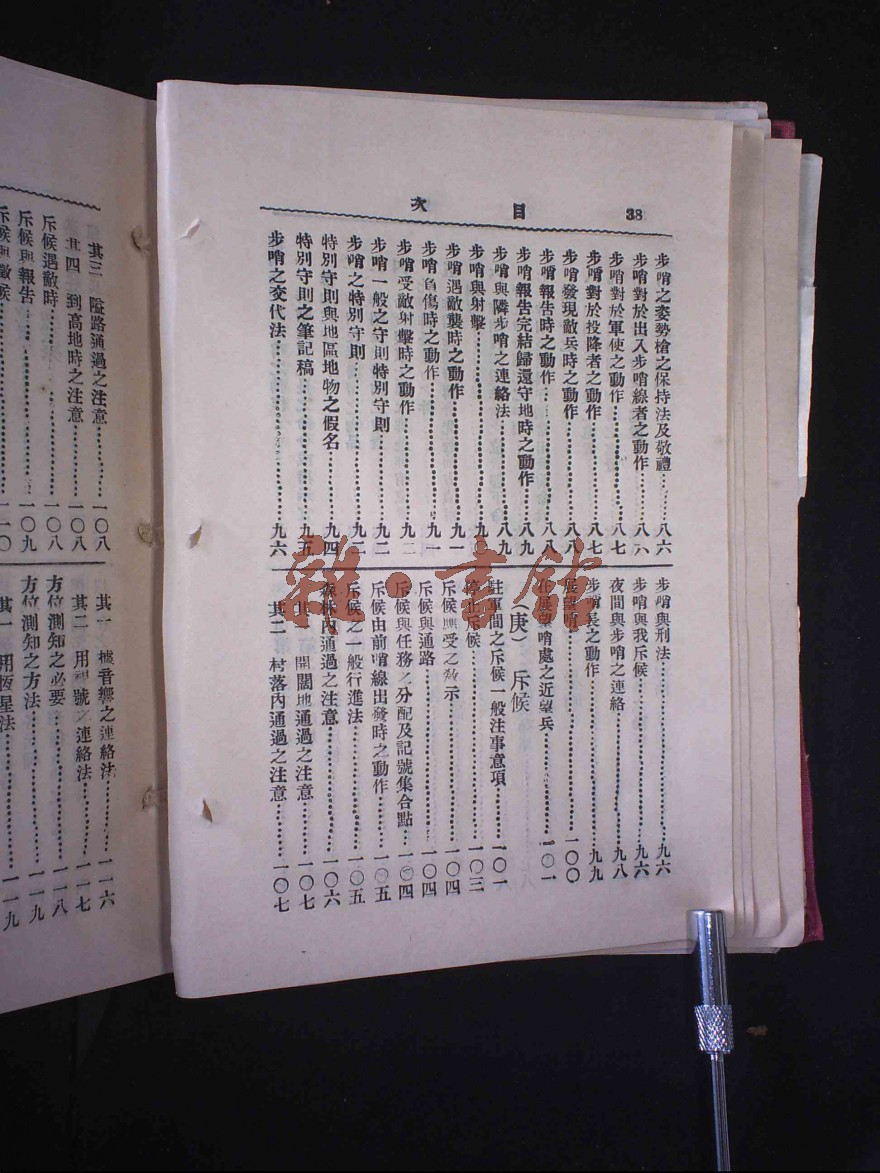 38 目次
步哨之姿勢槍之保持法及敬禮……八六
步哨對於出入步哨線者之動作……八六
步哨對於軍使之動作……八七
步哨對於投降者之動作……八七
步哨發現敵兵時之動作……八八
步哨報告時之動作……八八
步哨報告完結歸還守地時之動作……八九
步哨與隣步哨之連絡法……八九
步哨與射擊……九
步哨遇敵襲時之動作……九一
步哨負傷時之動作……九一
步哨受敵射擊時之動作……九二
步哨一般之守則特別守則……九二
步哨之特別守則……九二
特別守則與地區地物之假名……九四
特別守則之筆記稿……九五
步哨之交代法……九六
步哨與刑法……九六
步哨與我斥候……九六
夜間與步哨之連絡……九八
步哨長之動作……九九
展望哨……一〇〇
展望哨處之近望兵……一〇一
(庚) 斥候
駐軍間之斥候一般注事意項……一〇一
停止斥候……一〇三
斥候應受之教示……一〇四
斥候與通路……一〇四
斥候與任務之分配及記號集合點……一〇四
斥候由前哨線出發時之動作……一〇五
斥候之一般行進法……一〇五
森林內通過之注意……一〇六
其一 開闊地通過之注意……一〇七
其二 村落內通過之注意……一〇七
其三 隘路通過之注意……一〇八
其四 到高地時之注意……一〇八
斥候遇敵時……一〇八
斥候與報告……一〇九
斥候與敵候……一一〇
其一 音響之連絡法……一一六
其二 用記號之連絡法……一一七
方位測知之必要……一一八
方位測知之方法……一一九
其一 用恆星法……一一九
雜·書館